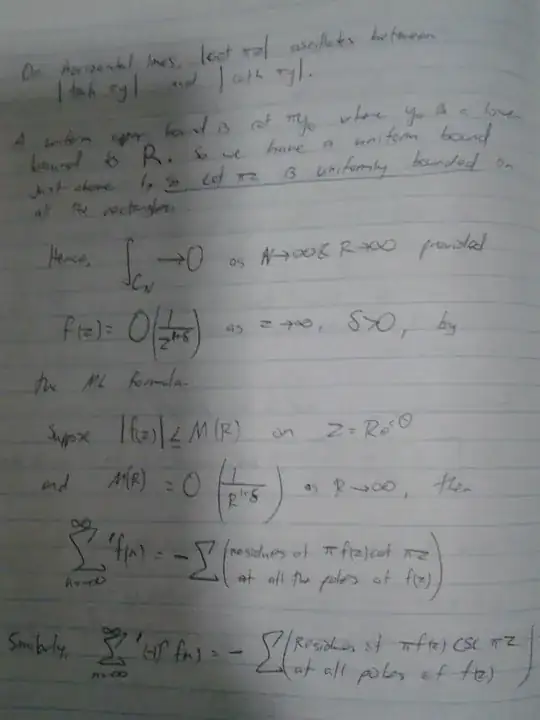 On horizontal lines, |cot πz| oscillates between
|tanh πy| and |coth πy|.
A uniform upper bound is cot πy₀ where y₀ is a lower
bound to R. So we have a uniform bound
just above 1, so cot πz is uniformly bounded on
all the rectangles.
Hence, ∫_{C_N} → 0 as N→∞ & R→∞ provided
f(z) = O(1/z^{1+δ}) as z→∞, δ>0, by
the ML formula.
Suppose |f(z)| ≤ M(R) on z = Re^{iθ}
and M(R) = O(1/R^{1+δ}) as R→∞, then
∑_{n=-∞}^{∞}' f(n) = -∑(residues of π f(z) cot πz
at all the poles of f(z))
Similarly, ∑_{n=-∞}^{∞}' (-1)^n f(n) = -∑(Residues of π f(z) csc πz
at all poles of f(z))